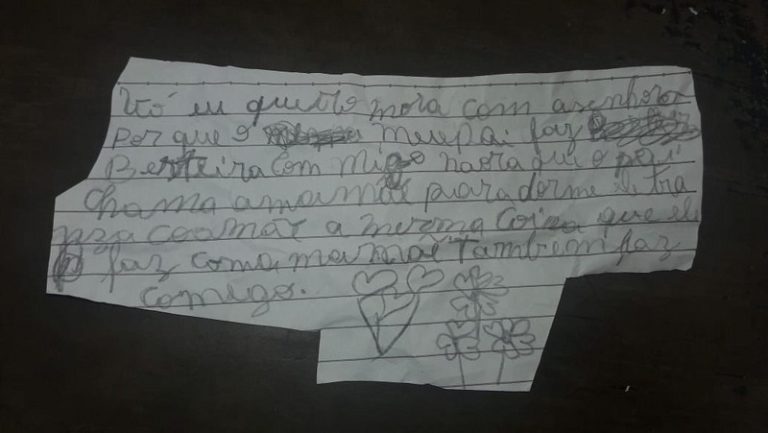 Vó eu quero mora com asenhora
Por que o meu pai faz
Besteira com migo naora que o pai
chama amamãe para dormi ele tra
pra a mesma coiza que ele
faz coma mamãe tambem faz
comigo.